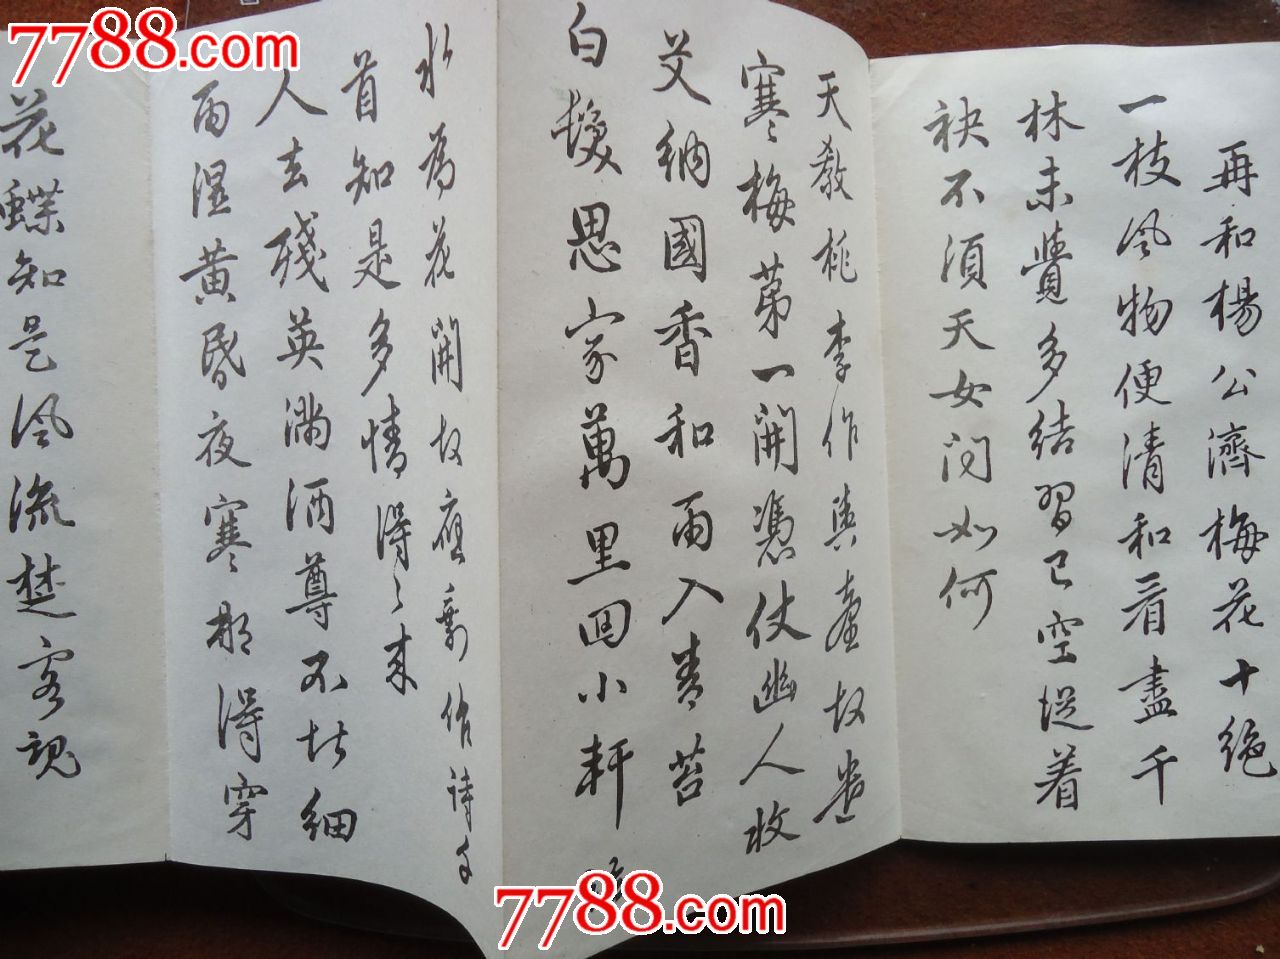 再和楊公濟梅花十絕
一枝風物便清和看盡千
林未覺多結習已空從着
袂不須天女問如何
天教桃李作輿臺故遣
寒梅第一開憑仗幽人收
艾納國香和雨入青苔
白髮思家萬里回小軒
水為花開故應剩作詩千
首知是多情得〻來
人去殘英滿酒尊不堪細
雨濕黃昏夜寒那得穿
花蝶知是風流楚客魂
7788.com
7788.com